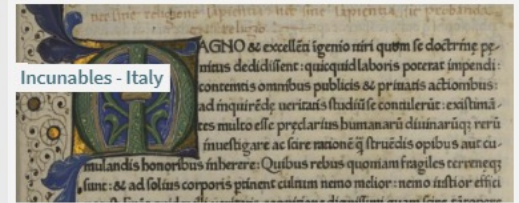 sapientia nec sine sapientia sit probanda
religio
MAGNO & excellēti īgenio uiri quom se doctrinę pe-
nitus dedidissent: quicquid laboris poterat impendi:
contemtis omnibus publicis & priuatis actionibus:
Incunables - Italy
ad inquirēdę ueritatis studiū se contulerūt: existimā
tes multo esse pręclarius humanarū diuinarūq; rerū
inuestigare ac scire rationē q̄ struēdis opibus aut cu-
mulandis honoribus inherere: Quibus rebus quoniam fragiles terreneq;
sunt: & ad solius corporis ptinent cultum nemo melior: nemo iustior effici